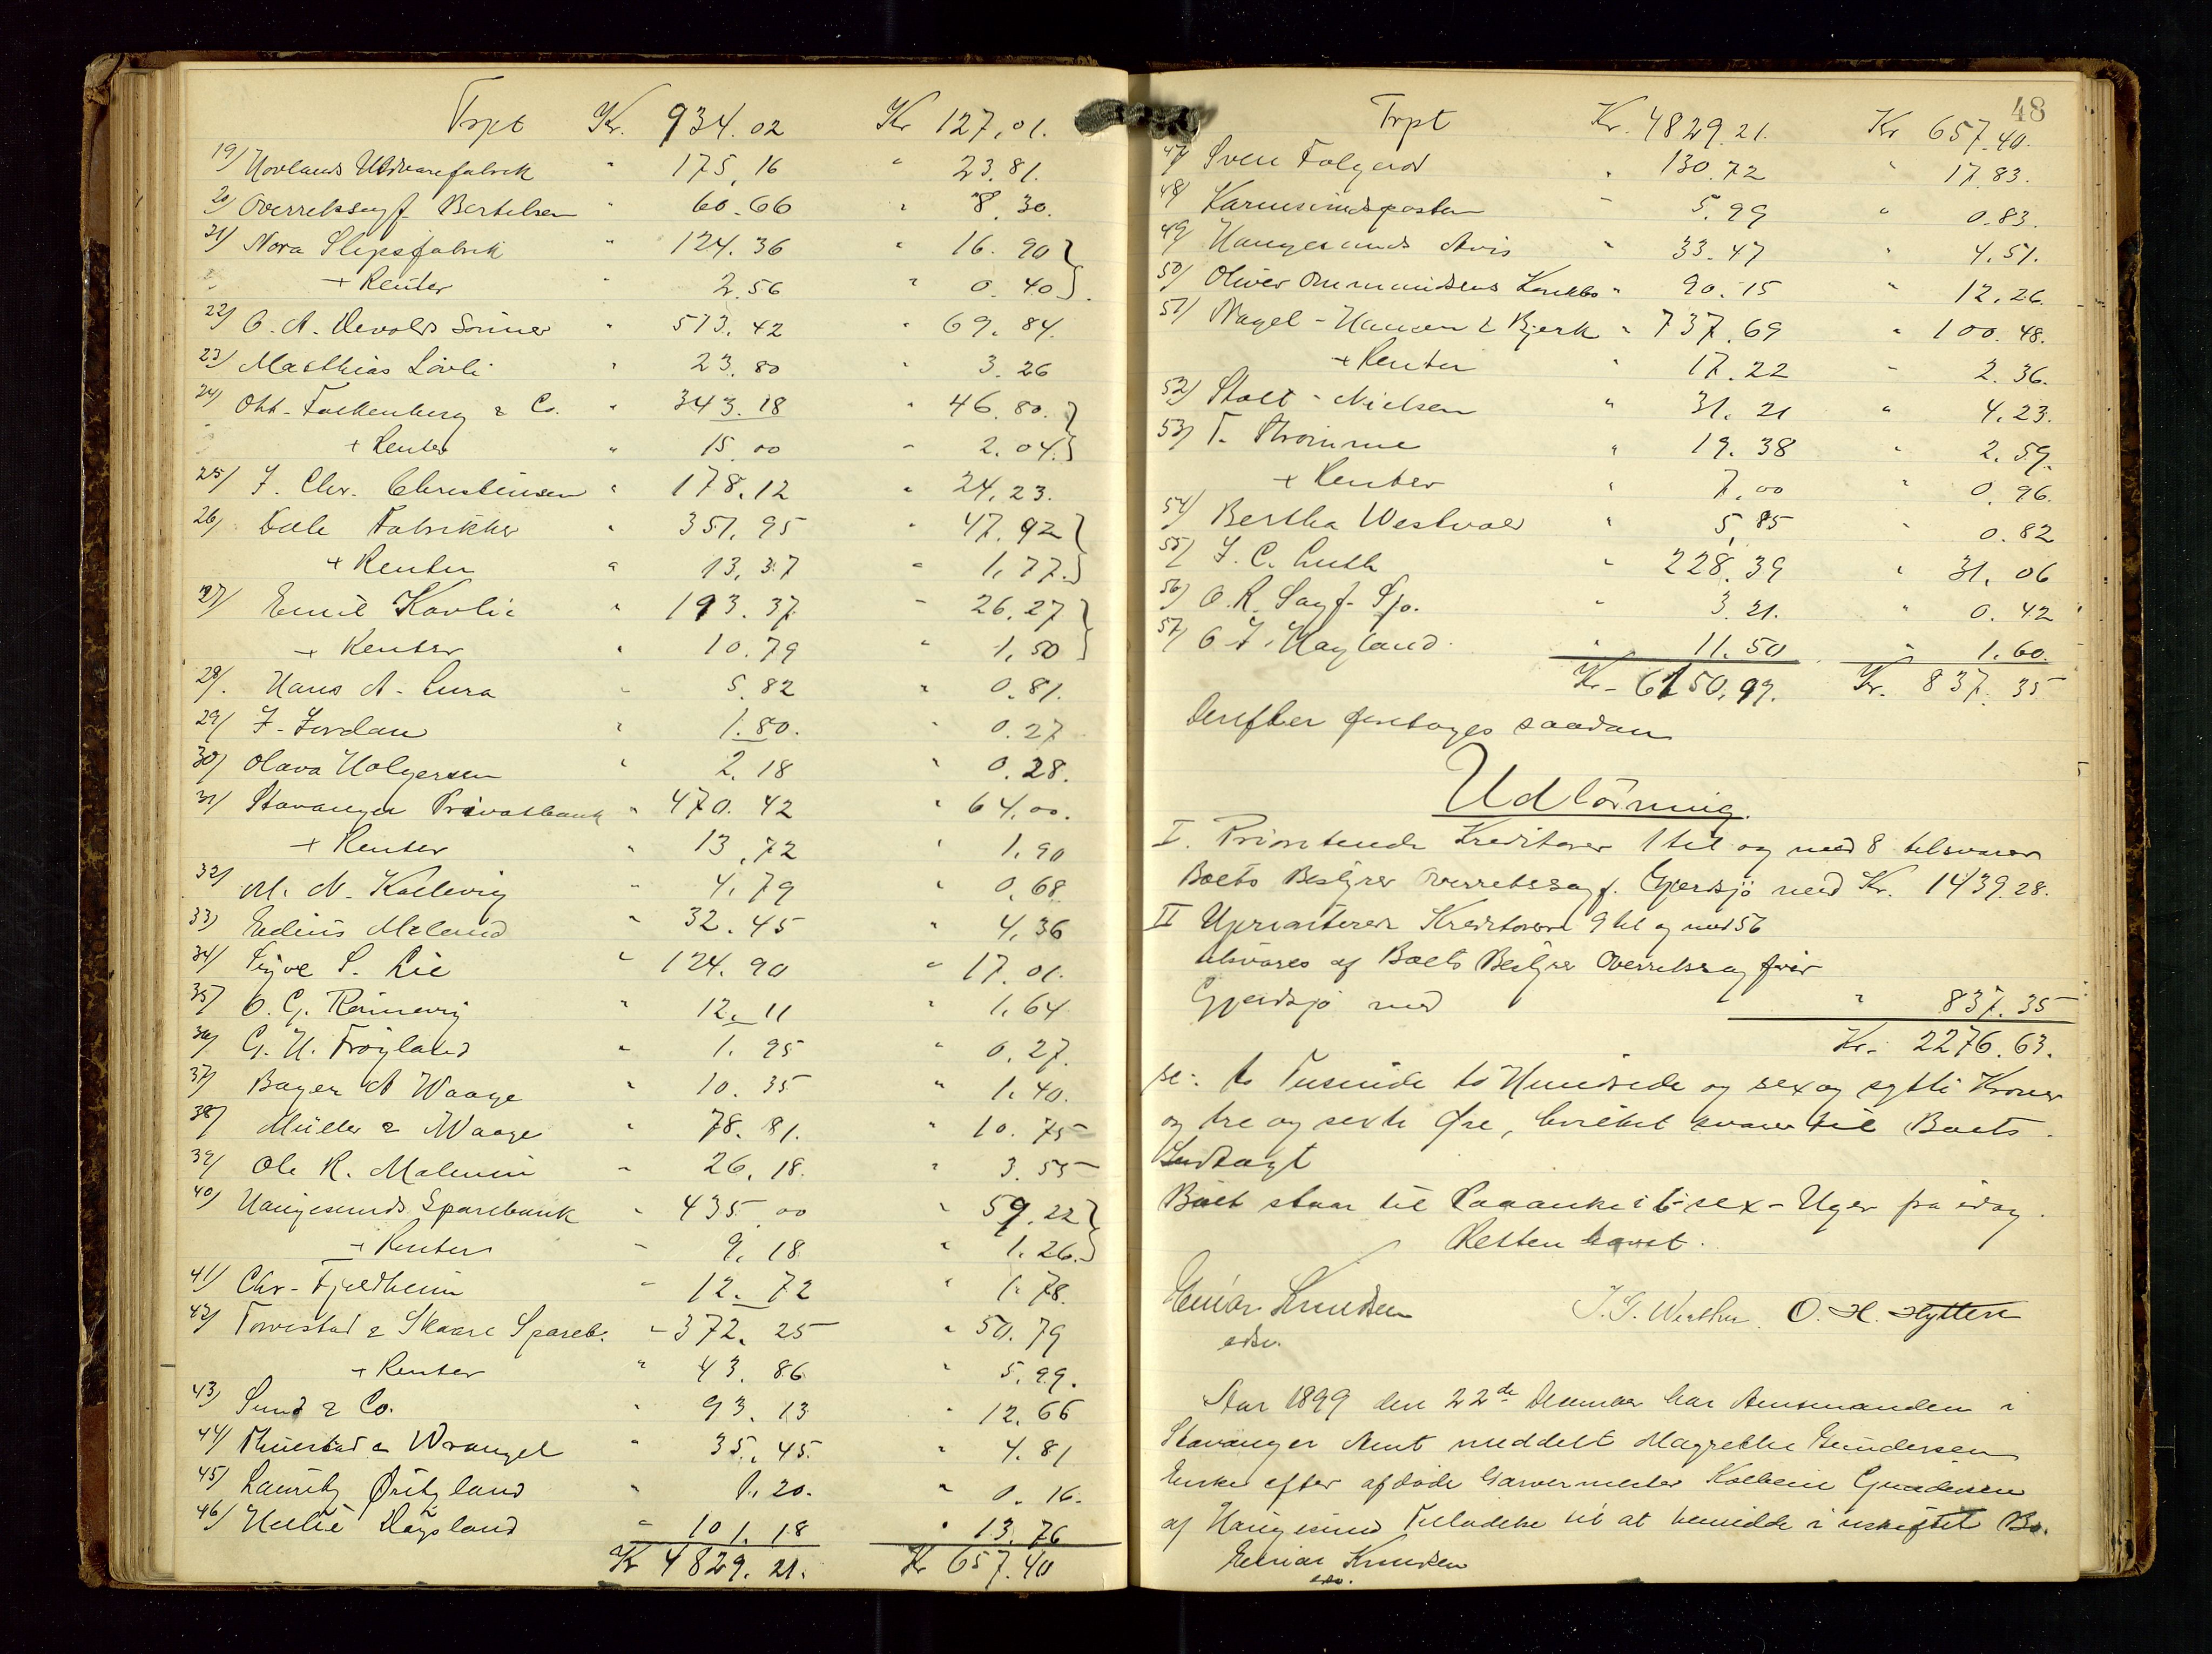 Trpt Kr. 934.02 Kr 127,01.
19/ Hovlands Uldvarefabrik " 175,16 " 23.81.
20/ Overretssagf. Bertelsen " 60.66 " 8.30.
21/ Nora Slipsfabrik " 124.36 " 16.90
+ Renter " 2.56 " 0.40
22/ O. A. Devolds Sönner " 513.42 " 69.84.
23/ Matthias Lövli " 23.80 " 3.26
24/ Ott. Falkenberg & Co. " 343.18 " 46.80.
+ Renter " 15.00 " 2.04.
25/ J. Chr. Christensen " 178.12 " 24,23.
26/ Dale Fabrikker " 351,95 " 47.92
+ Renter " 13,37 " 1,77.
27/ Emil Kavli " 193.37 " 26.27
+ Renter " 10.79 " 1,50
28/. Hans A. Lura " 5.82 " 0.81.
29/ J. Jordan " 1.80. " 0.27
30/ Olava Holgersen " 2.18 " 0.28.
31/ Stavanger Privatbank " 470.42 " 64.00.
+ Renter " 13,72 " 1.90
32/ M. N. Kallevig " 4,79 " 0,68
33/ Edius Meland " 32.45 " 4,36
34/ S. Lie " 124.90 " 17.01.
35/ O. G. Rönnevig " 12.11 " 1,64
36/ G. H. Fröyland " 1.95 " 0,27.
37/ Bager A Waage " 10.35 " 1.40.
38/ Müller & Waage " 78.81. " 10.75
39/ Ole R. Malmin " 26,18. " 3.55
40/ Haugesunds Sparebank " 435.00 " 59.22
+ Renter " 9,18. " 1.26.
41/ Chr. Fjeldheim " 12.72 " 1.78.
42/ Torvestad & Skaare Spareb. " 372.25 " 50.79
+ Renter " 43.86 " 5,99.
43/ Sund & Co. " 93.13 " 12.66
44/ Thuestad & Wrangel " 35,45. " 4.81
45/ Lauritz " 1.20. " 0.16.
46/ Hellie " 101.18 " 13.76
Kr 4829.21. Kr 657.40
48
Trpt Kr. 4829.21. Kr 657.40.
47/ Sven Falgerod " 130.72 " 17.83.
48/ Karmsundsposten " 5.99 " 0.83.
49/ Haugesunds Avis " 33.47 " 4.51.
50/ Oliver Ommundsens Konkbo " 90.15 " 12,26.
51/ Nagel-Hansen & Bjerk " 737.69 " 100.48.
+ Renter " 17.22 " 2.36.
52/ Stolt-Nielsen " 31.21 " 4,23.
53/ T. Thromme " 19.38 " 2.59.
+ Renter " 7.00 " 0.96.
54/ Bertha Westvold " 5,85 " 0.82
55/ J. C. Luth " 228.39 " 31.06
56/ O.R. Sagf. Sjo. " 3.21. " 0.42
57/ O J. Hagland. " 11.50 " 1.60.
Kr. 6150,99. Kr. 837.35
Derefter foretages saadan
Udlösning.
I. Prioriterede Kreditorer 1 til og med 8 tilsvarer
Boets Bestyrer Overretssagf. Gjerdsjö med Kr. 1439.28.
II Uprioriterede Kreditorer 9 til og med 56
tilsvares af Boets Bestyrer Overretssagförer
Gjerdsjö med " 837.35
Kr. 2276.63.
sie: to Tusinde to Hundrede og sex og sytti Kroner
og tre og sexti Øre, hvilket svarer til Boets
Indtægt
Boet staar til Paaanke i 6-sex-Uger fra idag.
Retten hævet.
Einar Knudsen
edsv.
J. G. O. H. Hytten
Aar 1899 den 22de December har Amtmanden i
Stavanger Amt meddelt Magrethe Gundersen
Enke efter afdöde Garvermester Kolbein Gundersen
af Haugesund Tilladelse til at hensidde i uskiftet Bo.
Einar Knudsen
edsv.